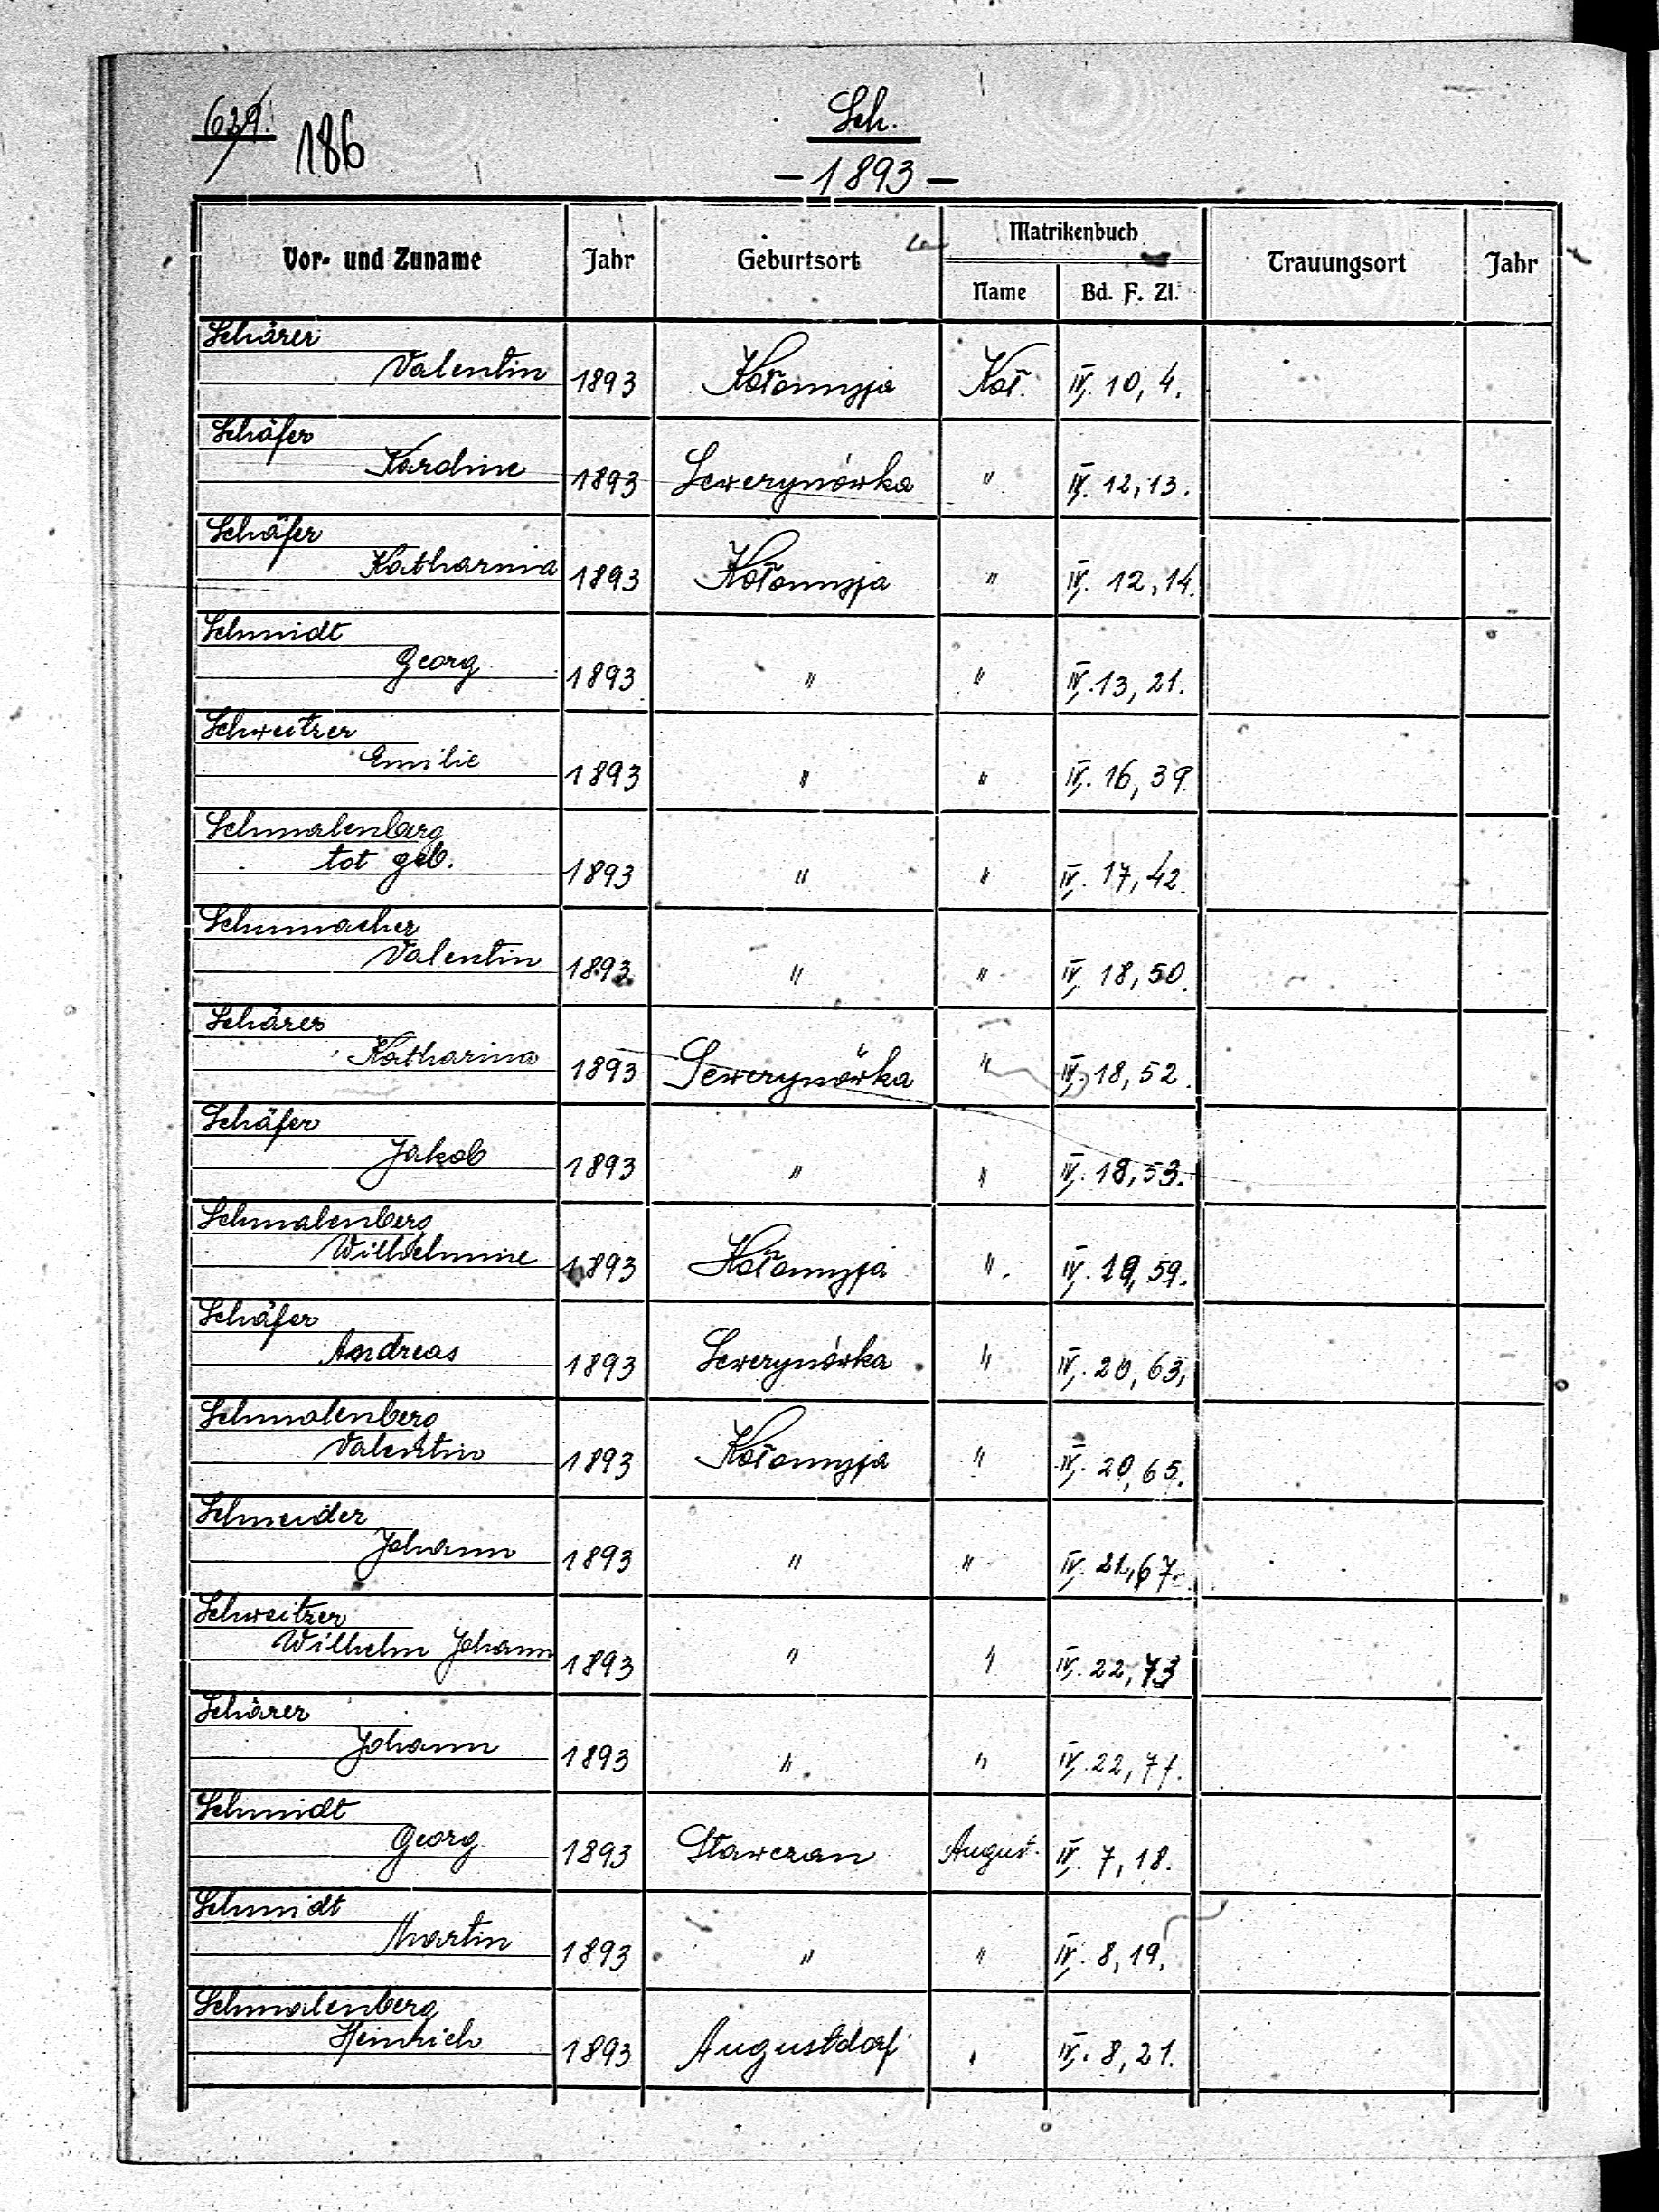 629. 186
Sch.
- 1893 -
Vor- und Zuname Jahr Geburtsort Matrikenbuch Trauungsort Jahr
Name Bd. F. Zl.
Schärer
Valentin 1893 Kołomyja Koł. IV. 10, 4.
Schäfer
Karoline 1893 Sewerynówka " IV. 12, 13.
Schäfer
Katharina 1893 Kołomyja " IV. 12, 14.
Schmidt
Georg 1893 " " IV. 13, 21.
Schweitzer
Emilie 1893 " " IV. 16, 39.
Schmalenberg
tot geb. 1893 " " IV. 17, 42.
Schumacher
Valentin 1893 " " IV. 18, 50.
Schärer
Katharina 1893 Sewerynówka " IV. 18, 52.
Schäfer
Jakob 1893 " " IV. 18, 53.
Schmalenberg
Wilhelmine 1893 Kołomyja " IV. 19, 59.
Schäfer
Andreas 1893 Sewerynówka " IV. 20, 63.
Schmalenberg
Valentin 1893 Kołomyja " IV. 20, 65.
Schneider
Johann 1893 " " IV. 21, 67.
Schweitzer
Wilhelm Johann 1893 " " IV. 22, 73
Schärer
Johann 1893 " " IV. 22,
Schmidt
Georg 1893 Stawczan August. IV. 7, 18.
Schmidt
Martin 1893 " " IV. 8, 19.
Schmalenberg
Heinrich 1893 Augustdorf " IV. 8, 21.